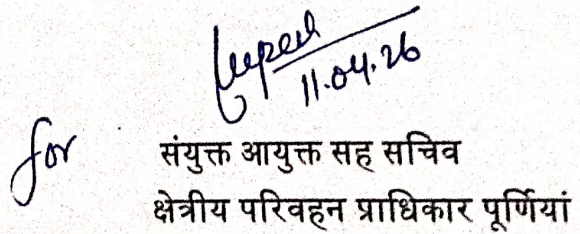 11.04.26
for संयुक्त आयुक्त सह सचिव
क्षेत्रीय परिवहन प्राधिकार पूर्णियां